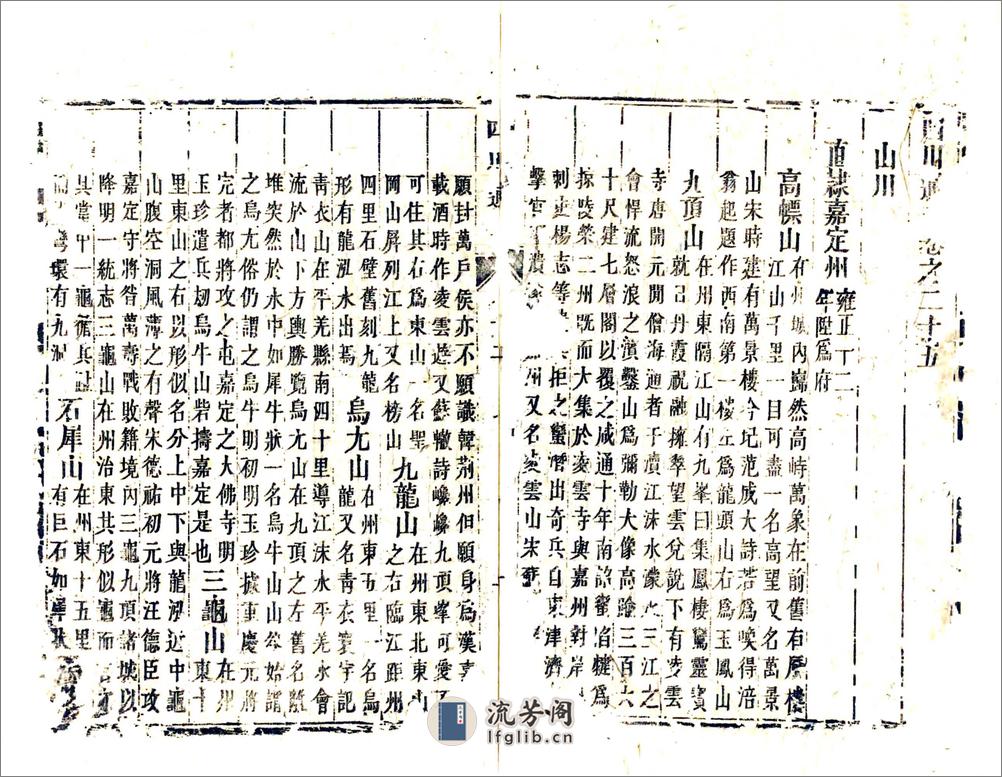 四川通 卷之二十五
山川
直隸嘉定州 雍正十二
年陞為府
高幖山 在州城內巋然高峙萬象在前舊有層樓
江山千里一目可盡一名高望又名萬景
山宋時建有萬景樓今圮范成大詩若為喚得涪
翁起題作西南第一樓左為龍頭山右為玉鳳山
九頂山 在州東隔江山有九峯曰集鳳棲鸞靈寶
就日丹霞祝融擁翠望雲兌說下有凌雲
寺唐開元間僧海通者于瀆江沫水濛水三江之
會悍流怒浪之濱鑿山為彌勒大像高踰三百六
十尺建七層閣以覆之咸通十年南詔蠻酋樅為
掠陵榮二州旣而大集於凌雲寺與嘉州對岸
刺史楊志等 拒之蠻潛出奇兵自東津濟
擊官軍潰 州又名凌雲山宋
四川通
願封萬戶侯亦不願識韓荊州但願身為漢嘉
載酒時作凌雲遊又蘇轍詩巉巉九頂峰可愛
可住其右為東山一名聖 九龍山 在州東北東山
岡山屏列江上又名榜山 之右臨江距州
四里石壁舊刻九龍 烏尤山 在州東五里一名烏
形有龍泓水出焉 龍又名青衣寰宇記
青衣山在平羌縣南四十里導江沫水平羌水會
流於山下方輿勝覽烏尤山在九頂之左舊名離
堆突然於水中如犀牛狀一名烏牛山山谷始謂
之烏尤俗仍謂之烏牛明初明玉珍據重慶元將
完者都將攻之屯嘉定之大佛寺明
玉珍遣兵刼烏牛山砦擣嘉定是也 三龜山 在州
東十
里東山之右以形似名分上中下與龍泓近中龜
山腹空洞風薄之有聲宋德祐初元將汪德臣攻
嘉定守將昝萬壽戰敗籍境內三龜九頂諸城以
降明一統志三龜山在州治東其形似龜而
其當中一龜循其 石犀山 在州東十五里
環有九洞 有巨石如犀狀
流芳阁
lfglib.cn